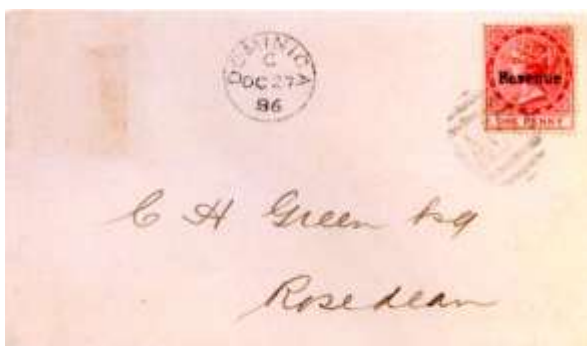 DOMINICA
C
OC 27
86
Revenue
ONE PENNY
C H Green Esq
Rosedean